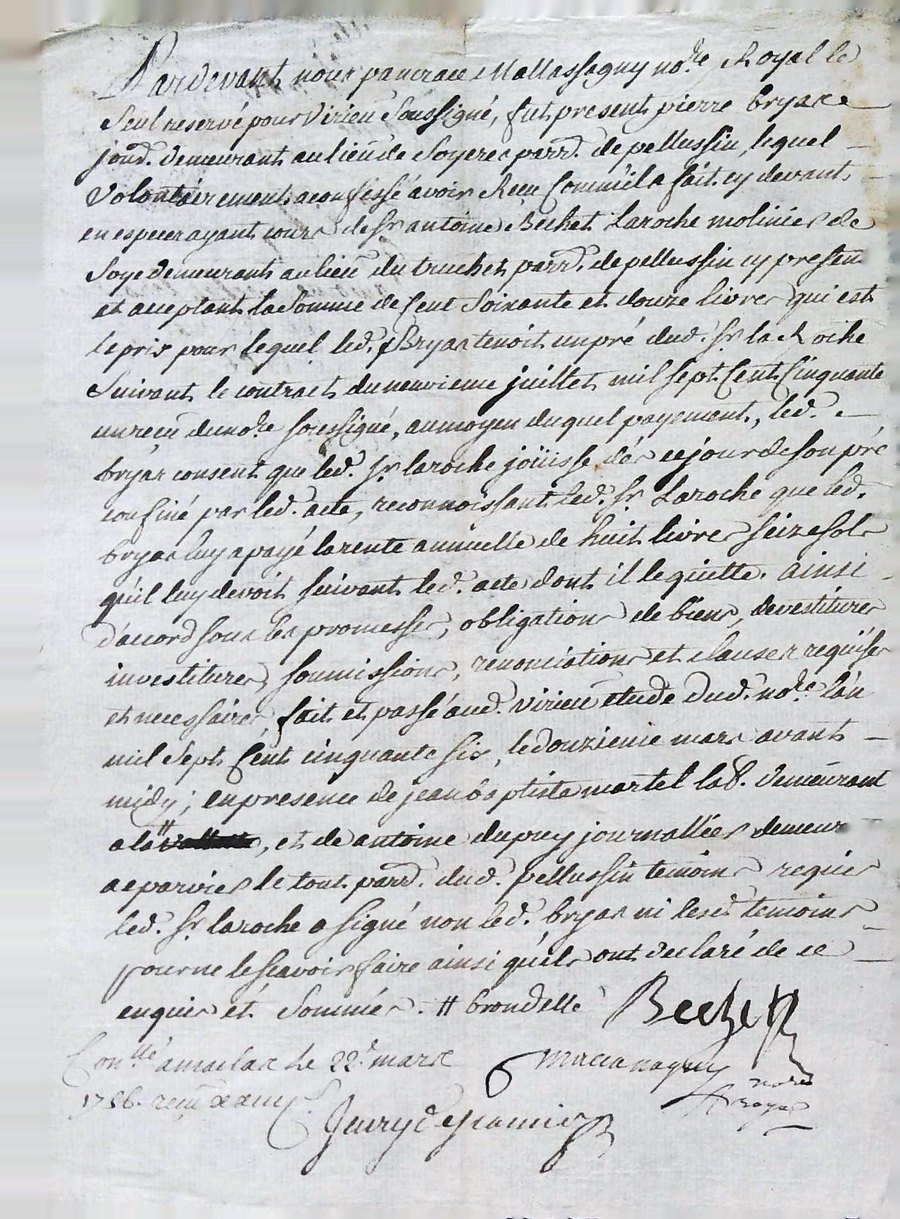 Pardevant nous pancrace Mallassagny no.re Royal le
Seul reservé pour Virieu Soussigné, fut present pierre bryas
jond. demeurant au lieu de Soyeres parr.d de pellussin, lequel
Volontairement a confessé avoir Receu Comme il a fait cy devant
en especes ayant cours de Sr antoine Bechet Laroche molinier de
Soye demeurant au lieu du truchet parr.d de pellussin cy presen
et acceptant la Somme de Cent Soixante et douze livres qui est
le prix pour lequel led. Bryas tenoit un pré dud. Sr la Roche
Suivant le contract du neuvieme juillet mil Sept Cent Cinquante
un receu du no.re Soussigné, au moyen du quel payement, led.
bryas consent que led. Sr laroche joüisse dés ce jour de Son pré
confiné par led. acte, reconnoissant led. Sr Laroche que led.
bryas luy a payé la rente annuelle de huit livres Seize Sols
qu'il luy devoit Suivant led. acte dont il le quitte. ainsi
d'accord Sous les promesses, obligations de biens, devestitures
investitures, Soumissions, renonciations et clauses requises
et necessaires, fait et passé aud. Virieu etude dud. no.re l'an
mil Sept Cent cinquante Six, le douzieme mars avant
midy; en presence de jean baptiste martel lab. demeurant
a la #, et de antoine dupuy journallier demeur
a eparvier le tout parr.d dud. pellussin temoins requis
led. Sr laroche a Signé non led. bryas ni lesd. temoins
pour ne le Scavoir faire ainsi qu'ils ont declaré de ce
enquis et Sommés. # brondelle Bechet
Con.llé a maclas le 22.e mars
1756. receu
no.re
royal